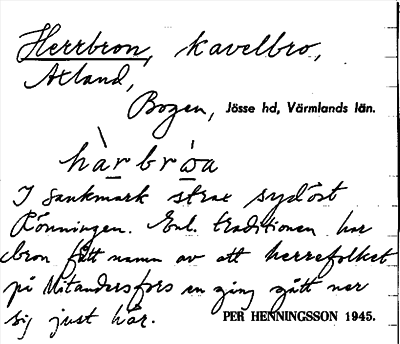 Herrbron, kavelbro,
Axland,
Bogen, Jösse hd, Värmlands län.
hàrbróa
I sankmark strax sydöst
Rönningen. Enl. traditionen har
bron fått namn av att herrefolket
på Mitandersfors en gång gått ner
sig just här. PER HENNINGSSON 1945.